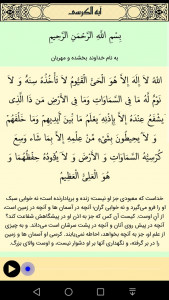 آیة الکرسی
بِسْمِ اللَّهِ الرَّحْمَنِ الرَّحِيمِ
به نام خداوند بخشنده و مهربان
اللَّهُ لَا إِلَهَ إِلَّا هُوَ الْحَيُّ الْقَيُّومُ لَا تَأْخُذُهُ سِنَةٌ وَ لَا
نَوْمٌ لَهُ مَا فِي السَّمَاوَاتِ وَمَا فِي الْأَرْضِ مَن ذَا الَّذِي
يَشْفَعُ عِنْدَهُ إِلَّا بِإِذْنِهِ يَعْلَمُ مَا بَيْنَ أَيْدِيهِمْ وَمَا خَلْفَهُمْ
وَ لَا يُحِيطُونَ بِشَيْءٍ مِّنْ عِلْمِهِ إِلَّا بِمَا شَاء وَسِعَ
كُرْسِيُّهُ السَّمَاوَاتِ وَ الْأَرْضَ وَ لَا يَؤُودُهُ حِفْظُهُمَا وَ
هُوَ الْعَلِيُّ الْعَظِيمُ
خداست که معبودی جز او نیست؛ زنده و برپادارنده است؛ نه خوابی سبک
او را فرو می‌گیرد و نه خوابی گران؛ آنچه در آسمان ها و آنچه در زمین است
از آن اوست. کیست آن کس که جز به اذن او در پیشگاهش شفاعت کند؟
آنچه در پیش روی آنان و آنچه در پشت سرشان است می‌داند. و به چیزی
از علم او جز به آنچه بخواهد احاطه نمی‌یابند. کرسی او آسمان ها و زمین
را در بر گرفته، و نگهداری آنها بر او دشوار نیست، و اوست والای بزرگ.